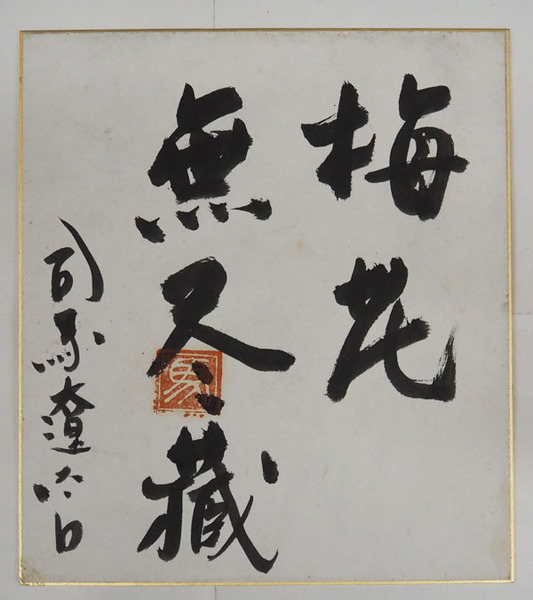 梅花
無尽藏
司馬遼太郎